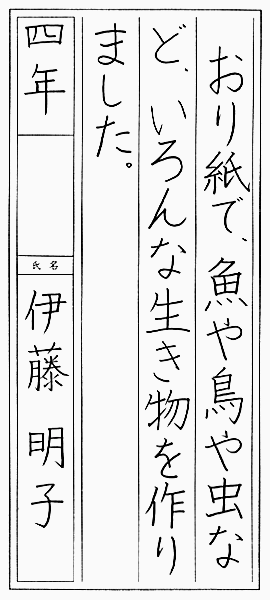 おり紙で、魚や鳥や虫な
ど、いろんな生き物を作り
ました。
四年
氏名
伊藤 明子